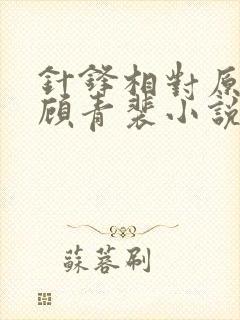 針鋒相對原
顧青裴小說
蘇蓉刷